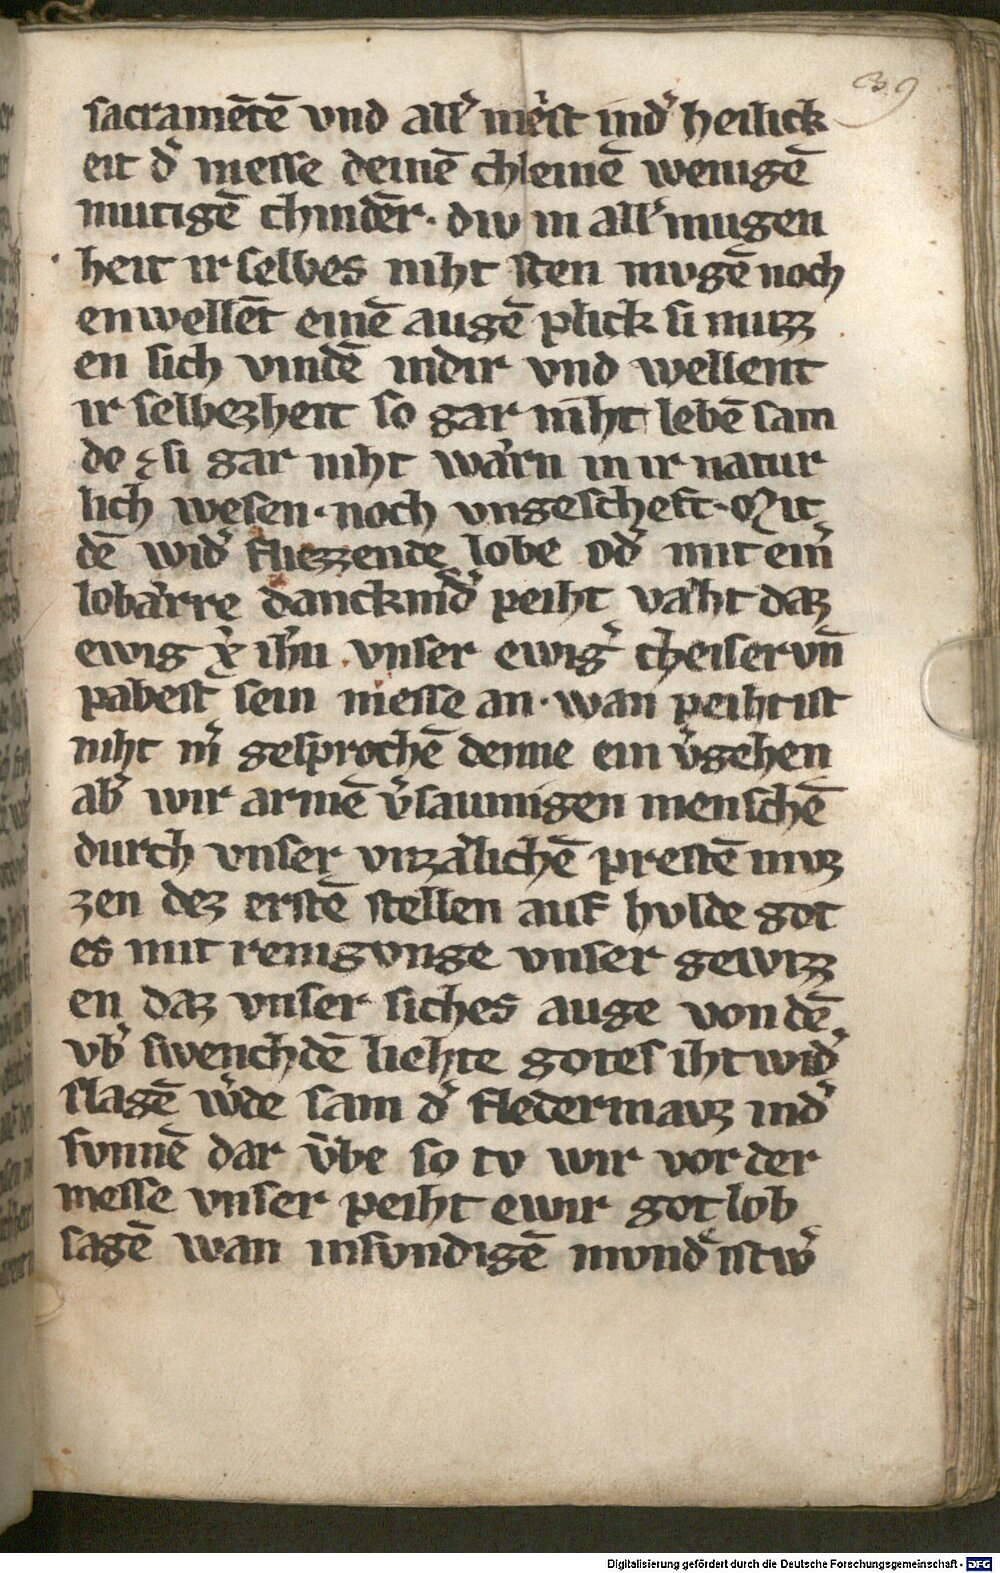 39
sacramētē vnd all᷑ me᷑st ind᷑ heilick
eit d᷑ messe deinē chleinē wenigē
mutigē chindēr · div in all᷑ mugen
heit ir selbes niht sten mvgē noch
enwellēt einē augē plick si muzz
en sich vindē indir vnd wellent
ir selbezheit so gar niht lebē sam
de z si gar niht warn in ir natur
lich wesen · noch vngescheft · Mit
dē wid᷑ fliezzende lobe od᷑ mit ein᷑
lobarre danckind᷑ peiht vaht daz
ewig x᷑ ih̄u . vnser ewig᷑ cheiser vn̄
pabest sein messe an · wan peiht ist
niht m᷑ gesprochē denne ein v᷑gehen
ab᷑ wir armē v᷑saumigen menschē
durch vnser vnzalichē prestē muz
zen dez erstē stellen auf hvlde got
es mit renigvnge vnser gewizz
en daz vnser siches auge von dē
vb᷑ swenchdē liehte gotes iht wid᷑
slagē w᷑de sam d᷑ fledermauz ind᷑
svnnē dar v᷑be so tv wir vor der
messe vnser peiht e wir got lob
sagē wan insvndigē mvnd᷑ ist w᷑
Digitalisierung gefördert durch die Deutsche Forschungsgemeinschaft - DFG